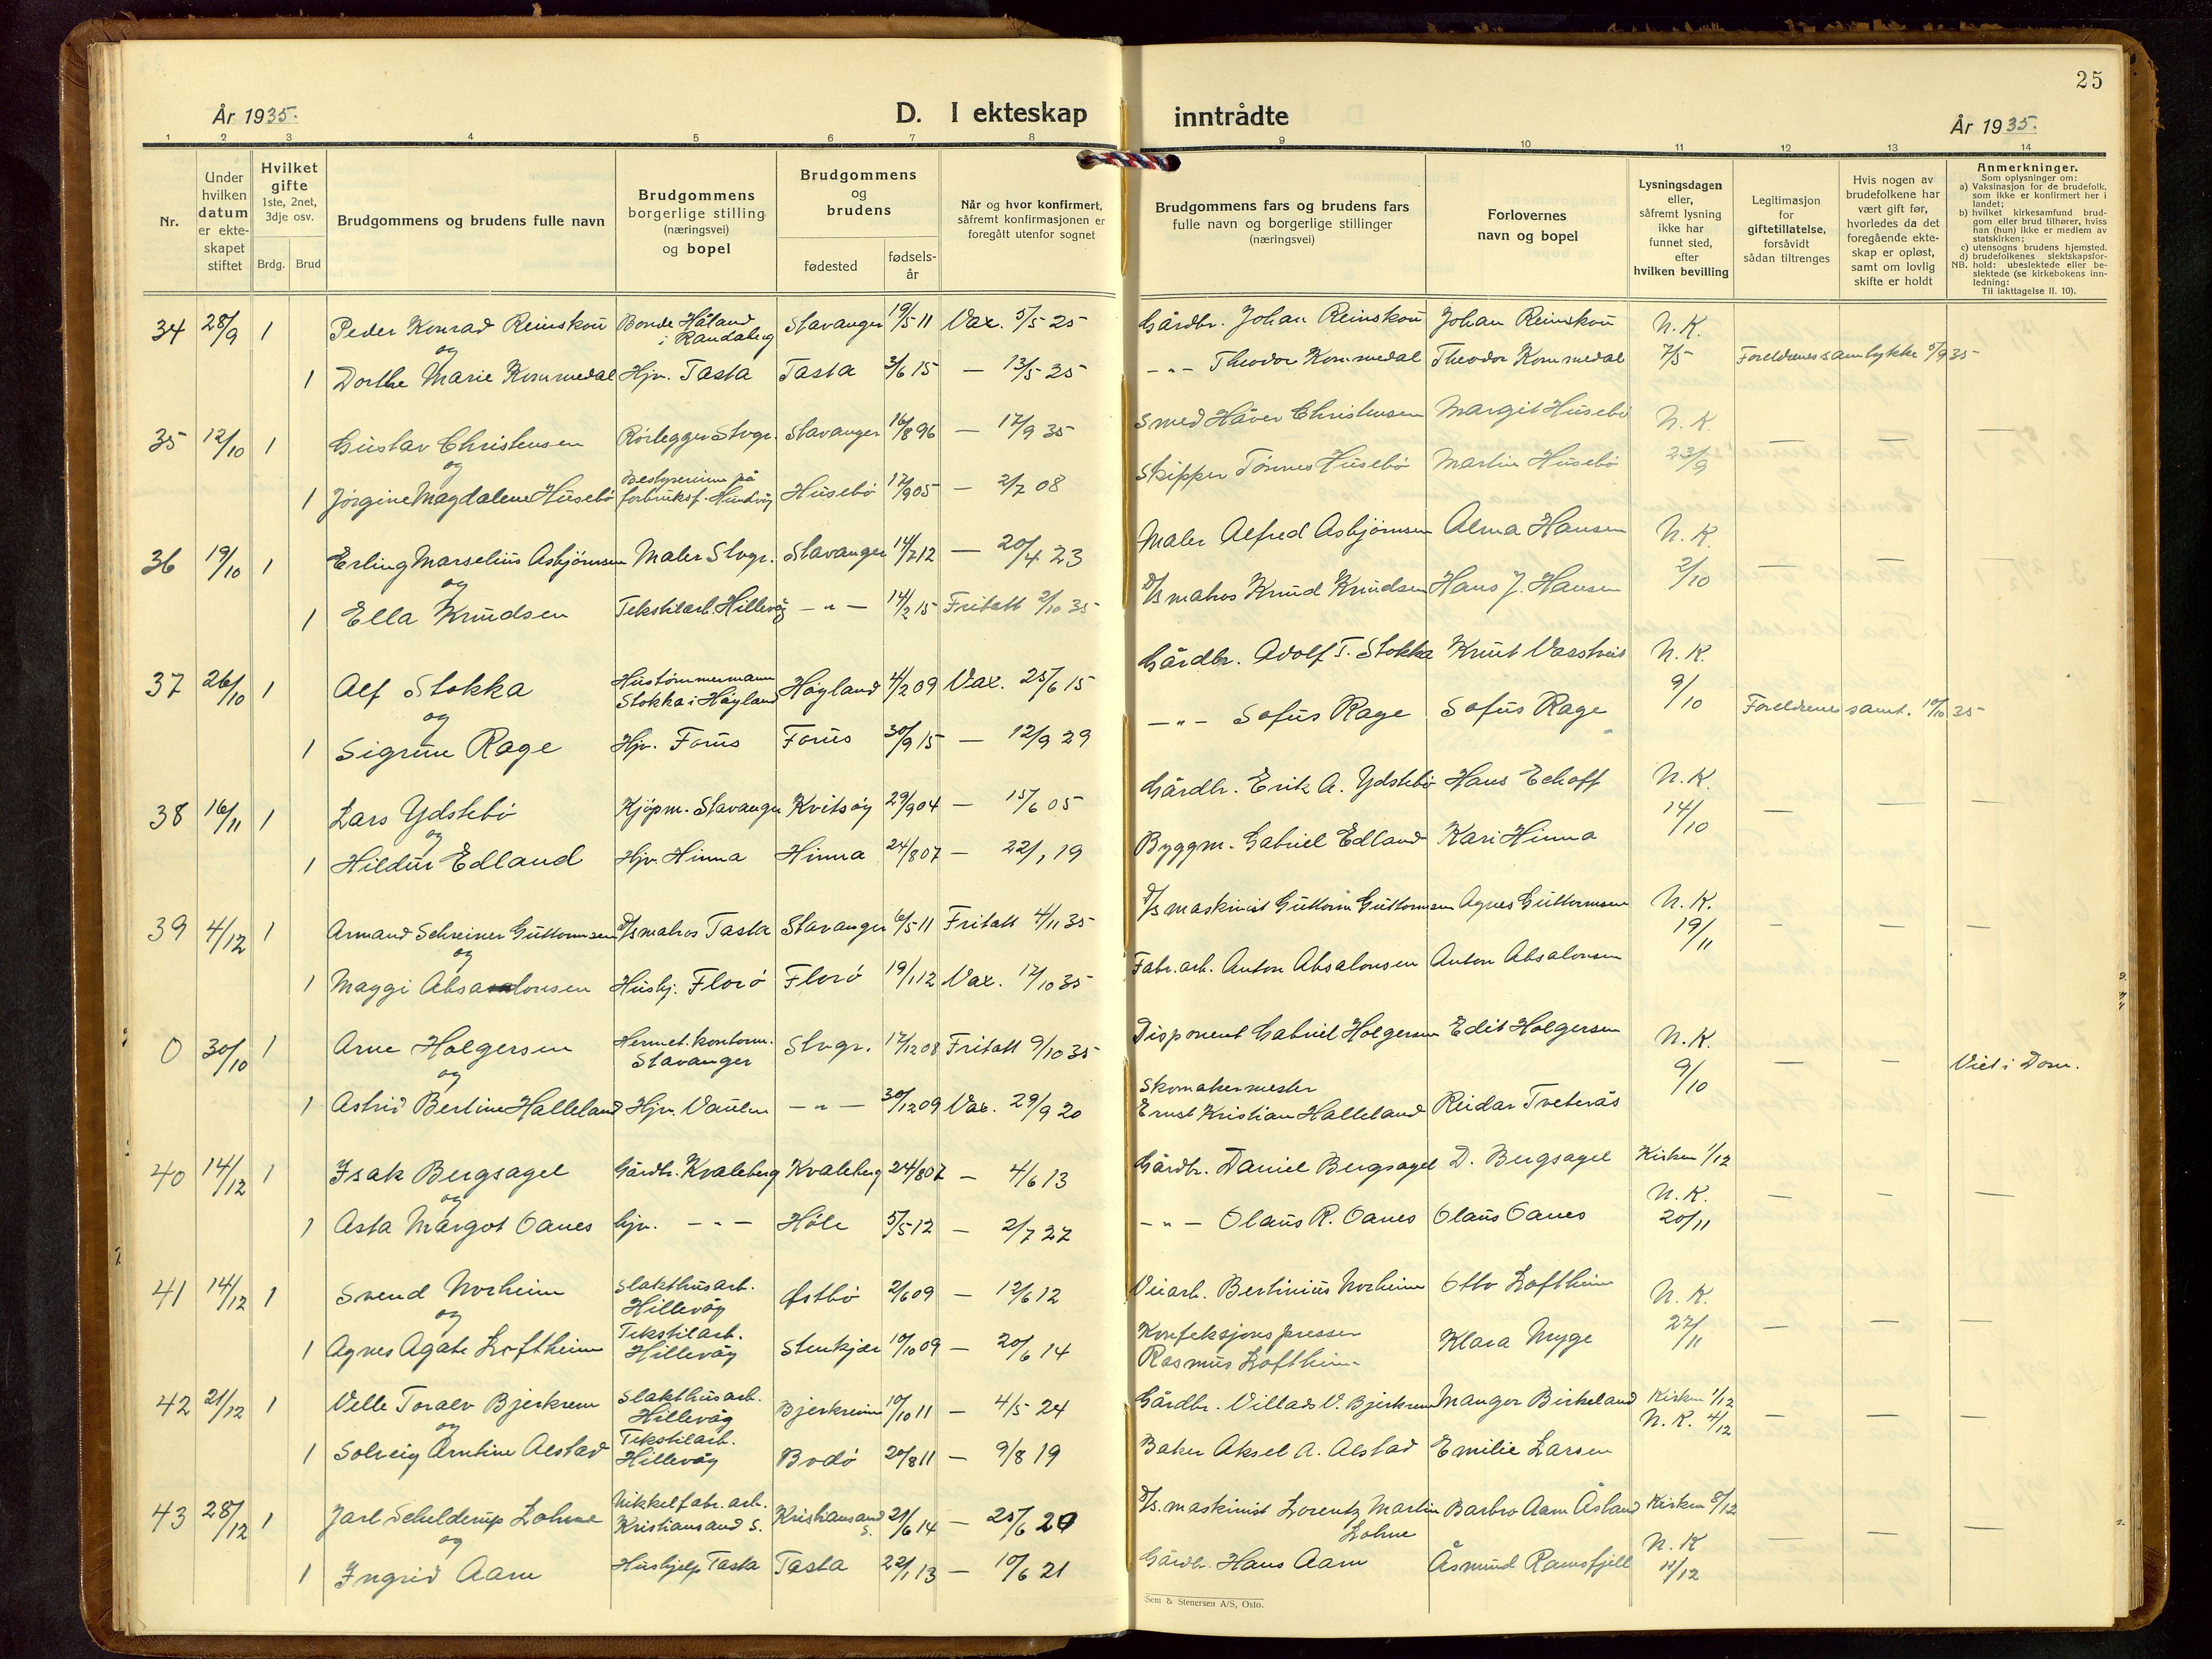 25
År 1935.
D. I ekteskap inntrådte
År 1935.
1 2 3 4 5 6 7 8 9 10 11 12 13 14
Nr.
Under hvilken datum er ekteskapet stiftet
Hvilket gifte 1ste, 2net, 3dje osv.
Brdg. Brud
Brudgommens og brudens fulle navn
Brudgommens borgerlige stilling (næringsvei) og bopel
Brudgommens og brudens
fødested
fødselsår
Når og hvor konfirmert, såfremt konfirmasjonen er foregått utenfor sognet
Brudgommens fars og brudens fars fulle navn og borgerlige stillinger (næringsvei)
Forlovernes navn og bopel
Lysningsdagen eller, såfremt lysning ikke har funnet sted, efter hvilken bevilling
Legitimasjon for giftetillatelse, forsåvidt sådan tiltrenges
Hvis nogen av brudefolkene har vært gift før, hvorledes da det foregående ekteskap er opløst, samt om lovlig skifte er holdt
Anmerkninger.
Som oplysninger om:
a) Vaksinasjon for de brudefolk, som ikke er konfirmert her i landet;
b) hvilket kirkesamfund brudgom eller brud tilhører, hviss han (hun) ikke er medlem av statskirken;
c) utensogns brudens hjemsted.
d) brudefolkenes slektskapsforhold: ubeslektede eller beslektede (se kirkebokens innledning:
NB. Til iakttagelse II. 10).
34 28/9 1 Peder Konrad Reinskou Bonde Håland i Randaberg Stavanger 19/5 11 Vax. 5/5 25 Gårdbr. Johan Reinskou Johan Reinskou N.K. 7/5
og
1 Dorthe Marie Kommedal Hjv. Tasta Tasta 3/6 15 — 13/5 25 —"— Theodor Kommedal Theodor Kommedal Foreldrenes samtykke 5/9 35
35 12/10 1 Gustav Christensen Rørlegger Stvgr. Stavanger 16/8 96 — 17/9 35 Smed Håver Christensen Margit Husebö N.K. 23/9 — — —
og
1 Jörgine Magdalene Husebö Bestyrerinne på forbruksf. Hundvåg Husebö 17/9 05 — 2/7 08 Skipper Tönnes Husebö Martin Husebö
36 19/10 1 Erling Marselius Asbjörnsen Maler Stvgr. Stavanger 14/7 12 — 20/4 23 Maler Alfred Asbjörnsen Alma Hansen N.K. 2/10 — — —
og
1 Ella Knudsen Tekstilarb. Hillevåg —"— 14/2 15 Fritatt 2/10 35 D/s matros Knud Knudsen Hans J. Hansen
37 26/10 1 Alf Stokka Hustömmermann Stokka i Höyland Höyland 4/2 09 Vax. 25/6 15 Gårdbr. Adolf T. Stokka Knut Vasstveit N.K. 9/10
og
1 Sigrun Rage Hjv. Forus Forus 30/9 15 — 12/9 29 —"— Sofus Rage Sofus Rage Foreldrenes samt. 10/10 35
38 16/11 1 Lars Ydstebö Kjöpm. Stavanger Kvitsöy 29/9 04 — 15/6 05 Gårdbr. Erik A. Ydstebö Hans Echoff N.K. 14/10 — — —
og
1 Hildur Edland Hjv. Hinna Hinna 24/8 07 — 22/1 19 Byggm. Gabriel Edland Kari Hinna
39 4/12 1 Armand Schreiner Guttormsen D/s matros Tasta Stavanger 6/5 11 Fritatt 4/11 35 D/s maskinist Guttorm Guttormsen Agnes Guttormsen N.K. 19/11 — — —
og
1 Maggi Absalonsen Husbj. Florö Florö 19/1 12 Vax. 17/10 35 Fabr.arb. Anton Absalonsen Anton Absalonsen
0 30/10 1 Arne Holgersen Hermet. kontorm. Stavanger Stvgr. 17/12 08 Fritatt 9/10 35 Disponent Gabriel Holgersen Edit Holgersen N.K. 9/10 — — Viet i Dom.
og
1 Astrid Bertine Halleland Hjv. Vaulen —"— 30/12 09 Vax. 29/9 20 Skomakermester Ernst Kristian Halleland Reidar Tveterås
40 14/12 1 Isak Bergsagel Gårdbr. Kvaleberg Kvaleberg 24/8 07 — 4/6 13 Gårdbr. Daniel Bergsagel D. Bergsagel Kirken 1/12 N.K. 20/11 — — —
og
1 Asta Margot Oanes hjv. —"— Höle 5/5 12 — 2/7 27 —"— Olaus R. Oanes Olaus Oanes
41 14/12 1 Svend Norheim Slakthusarb. Hillevåg Østbö 2/6 09 — 12/6 12 Veiarb. Bertinius Norheim Otto Loftheim N.K. 27/11 — — —
og
1 Agnes Agate Loftheim Tekstilarb. Hillevåg Stenkjær 10/10 09 — 20/6 14 Konfeksjonspresser Rasmus Loftheim Klara Myge
42 21/12 1 Velle Toralv Bjerkrem Slakthusarb. Hillevåg Bjerkreim 10/10 11 — 4/5 24 Gårdbr. Villads V. Bjerkrem Mangor Birkeland Kirken 1/12 N.K. 4/12 — — —
og
1 Solveig Arntine Alstad Tekstilarb. Hillevåg Bodö 20/8 11 — 9/8 19 Baker Aksel A. Alstad Emilie Larsen
43 28/12 1 Jarl Schelderup Lohne Nikkelfabr. arb. Kristiansand S. Kristiansand S. 21/6 14 — 25/6 20 D/s. maskinist Lorentz Martin Lohne Barbro Aam Åsland Kirken 8/12 N.K 11/12 — — —
og
1 Ingrid Aam Hushjelp Tasta Tasta 22/1 13 — 10/6 21 Gårdbr. Hans Aam Åsmund Ramsfjell
Sem & Stenersen A/S, Oslo.